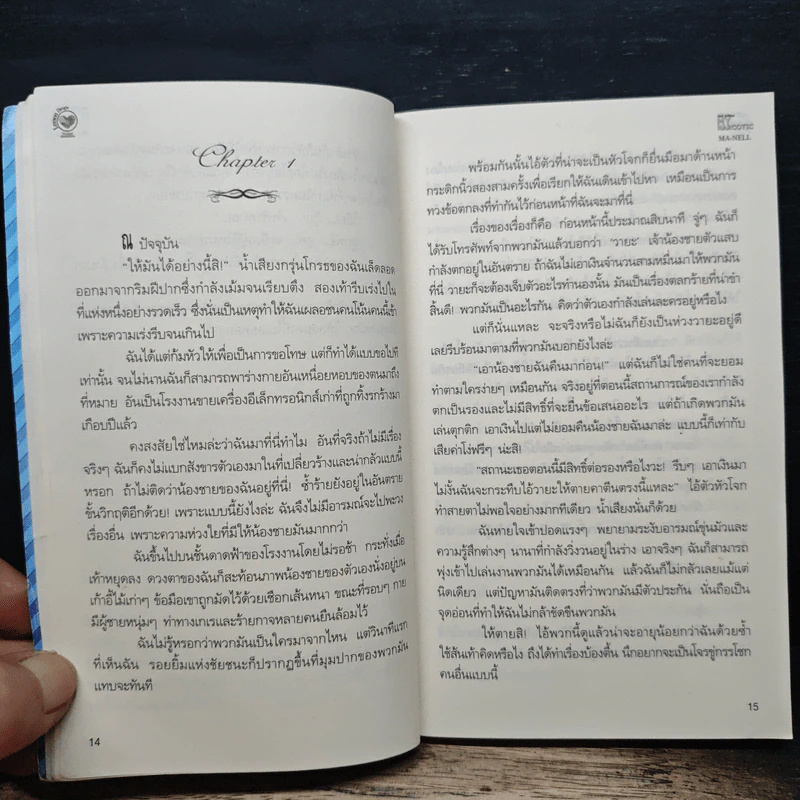 Chapter 1
ณ ปัจจุบัน
"ให้มันได้อย่างนี้สิ!" น้ำเสียงกรุ่นโกรธของฉันเล็ดลอด
ออกมาจากริมฝีปากซึ่งกำลังเม้มจนเรียบตึง สองเท้ารีบเร่งไปใน
ที่แห่งหนึ่งอย่างรวดเร็ว ซึ่งนั่นเป็นเหตุทำให้ฉันเผลอชนคนโน้นคนนี้เข้า
เพราะความเร่งรีบจนเกินไป
ฉันได้แต่ก้มหัวให้เพื่อเป็นการขอโทษ แต่ก็ทำได้แบบขอไปที
เท่านั้น จนไม่นานฉันก็สามารถพาร่างกายอันเหนื่อยหอบของตนมาถึง
ที่หมาย อันเป็นโรงงานขายเครื่องอิเล็กทรอนิกส์เก่าที่ถูกทิ้งรกร้างมา
เกือบปีแล้ว
คงสงสัยใช่ไหมล่ะว่าฉันมาที่นี่ทำไม อันที่จริงถ้าไม่มีเรื่อง
จริงๆ ฉันก็คงไม่แบกสังขารตัวเองมาในที่เปลี่ยวร้างและน่ากลัวแบบนี้
หรอก ถ้าไม่ติดว่าน้องชายของฉันอยู่ที่นี่! ซ้ำร้ายยังอยู่ในอันตราย
ขั้นวิกฤติอีกด้วย! เพราะแบบนี้ยังไงล่ะ ฉันจึงไม่มีอารมณ์จะไปพะวง
เรื่องอื่น เพราะความห่วงใยที่มีให้น้องชายมันมากกว่า
ฉันขึ้นไปบนชั้นดาดฟ้าของโรงงานโดยไม่รอช้า กระทั่งเมื่อ
เท้าหยุดลง ดวงตาของฉันก็สะท้อนภาพน้องชายของตัวเองนั่งอยู่บน
เก้าอี้ไม้เก่าๆ ข้อมือเขาถูกมัดไว้ด้วยเชือกเส้นหนา ขณะที่รอบๆ กาย
มีผู้ชายหนุ่มๆ ท่าทางเกเรและร้ายกาจหลายคนยืนล้อมไว้
ฉันไม่รู้หรอกว่าพวกมันเป็นใครมาจากไหน แต่วินาทีแรก
ที่เห็นฉัน รอยยิ้มแห่งชัยชนะก็ปรากฏขึ้นที่มุมปากของพวกมัน
แทบจะทันที
14
MY
NARCOTIC
MA-NELL
พร้อมกันนั้นไอ้ตัวที่น่าจะเป็นหัวโจกก็ยื่นมือมาด้านหน้า
กระดิกนิ้วสองสามครั้งเพื่อเรียกให้ฉันเดินเข้าไปหา เหมือนเป็นการ
ทวงข้อตกลงที่ทำกันไว้ก่อนหน้าที่ฉันจะมาที่นี่
เรื่องของเรื่องก็คือ ก่อนหน้านี้ประมาณสิบนาที จู่ๆ ฉันก็
ได้รับโทรศัพท์จากพวกมันแล้วบอกว่า 'วายะ' เจ้าน้องชายตัวแสบ
กำลังตกอยู่ในอันตราย ถ้าฉันไม่เอาเงินจำนวนสามหมื่นมาให้พวกมัน
ที่นี่ วายะก็จะต้องเจ็บตัวอะไรทำนองนั้น มันเป็นเรื่องตลกร้ายที่น่าขำ
สิ้นดี! พวกมันเป็นอะไรกัน คิดว่าตัวเองกำลังเล่นละครอยู่หรือไง
แต่ก็นั่นแหละ จะจริงหรือไม่ฉันก็ยังเป็นห่วงวายะอยู่ดี
เลยรีบร้อนมาตามที่พวกมันบอกยังไงล่ะ
"เอาน้องชายฉันคืนมาก่อน!" แต่ฉันก็ไม่ใช่คนที่จะยอม
ทำตามใครง่ายๆ เหมือนกัน จริงอยู่ที่ตอนนี้สถานการณ์ของเรากำลัง
ตกเป็นรองและไม่มีสิทธิ์ที่จะยื่นข้อเสนออะไร แต่ถ้าเกิดพวกมัน
เล่นตุกติก เอาเงินไปแต่ไม่ยอมคืนน้องชายฉันมาล่ะ แบบนี้ก็เท่ากับ
เสียค่าโง่ฟรีๆ น่ะสิ!
"สถานะเธอตอนนี้มีสิทธิ์ต่อรองหรือไงวะ! รีบๆ เอาเงินมา
ไม่งั้นฉันจะกระทืบไอ้วายะให้ตายคาตีนตรงนี้แหละ" ไอ้ตัวหัวโจก
ทำสายตาไม่พอใจอย่างมากทีเดียว น้ำเสียงนั่นก็ด้วย
ฉันหายใจเข้าปอดแรงๆ พยายามระงับอารมณ์ขุ่นมัวและ
ความรู้สึกต่างๆ นานาที่กำลังวิ่งวนอยู่ในร่าง เอาจริงๆ ฉันก็สามารถ
พุ่งเข้าไปเล่นงานพวกมันได้เหมือนกัน แล้วฉันก็ไม่กลัวเลยแม้แต่
นิดเดียว แต่ปัญหามันติดตรงที่ว่าพวกมันมีตัวประกัน นั่นถือเป็น
จุดอ่อนที่ทำให้ฉันไม่กล้าขัดขืนพวกมัน
ให้ตายสิ! ไอ้พวกนี้ดูแล้วน่าจะอายุน้อยกว่าฉันด้วยซ้ำ
ใช้ส้นเท้าคิดหรือไง ถึงได้ทำเรื่องบ้องตื้น นึกอยากจะเป็นโจรขู่กรรโชก
คนอื่นแบบนี้
15